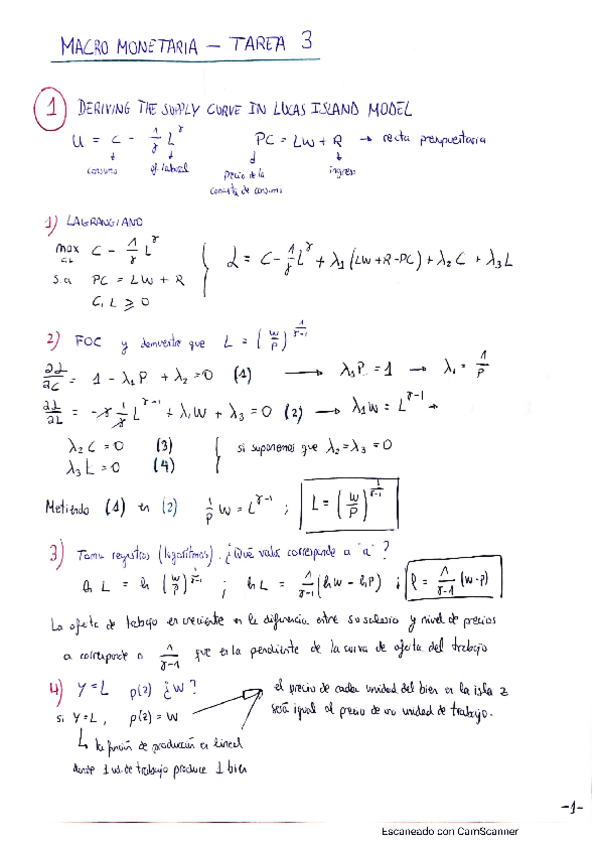 MACRO MONETARIA — TAREA 3
1 DERIVING THE SUPPLY CURVE IN LUCAS ISLAND MODEL
U = C - 1/γ L^γ    PC = LW + R → recta presupuestaria
consumo    of. laboral    precio de la canasta de consumo    ingreso
1) LAGRANGIANO
max C - 1/γ L^γ
C,L
s.a PC = LW + R
C, L ⩾ 0
L = C - 1/γ L^γ + λ1 (LW + R - PC) + λ2 C + λ3 L
2) FOC y demuestre que L = (W/P)^(1/(γ-1))
∂L/∂C = 1 - λ1 P + λ2 = 0 (1) → λ1 P = 1 → λ1 = 1/P
∂L/∂L = -γ 1/γ L^(γ-1) + λ1 W + λ3 = 0 (2) → λ1 W = L^(γ-1) →
λ2 C = 0 (3)
λ3 L = 0 (4)
si suponemos que λ2 = λ3 = 0
Metiendo (1) en (2) 1/P W = L^(γ-1) ; L = (W/P)^(1/(γ-1))
3) Tomar registros (logaritmos). ¿Qué valor corresponde a "a"?
ln L = ln (W/P)^(1/(γ-1)) ; ln L = 1/(γ-1) (ln W - ln P) ; l = 1/(γ-1) (w-p)
La oferta de trabajo es creciente en la diferencia entre su salario y nivel de precios
a corresponde a 1/(γ-1) que es la pendiente de la curva de oferta del trabajo
4) Y = L p(z) ¿W?
el precio de cada unidad del bien en la isla z
será igual al precio de una unidad de trabajo.
si Y = L, p(z) = W
la función de producción es lineal
donde 1 ud. de trabajo produce 1 bien
-1-
Escaneado con CamScanner